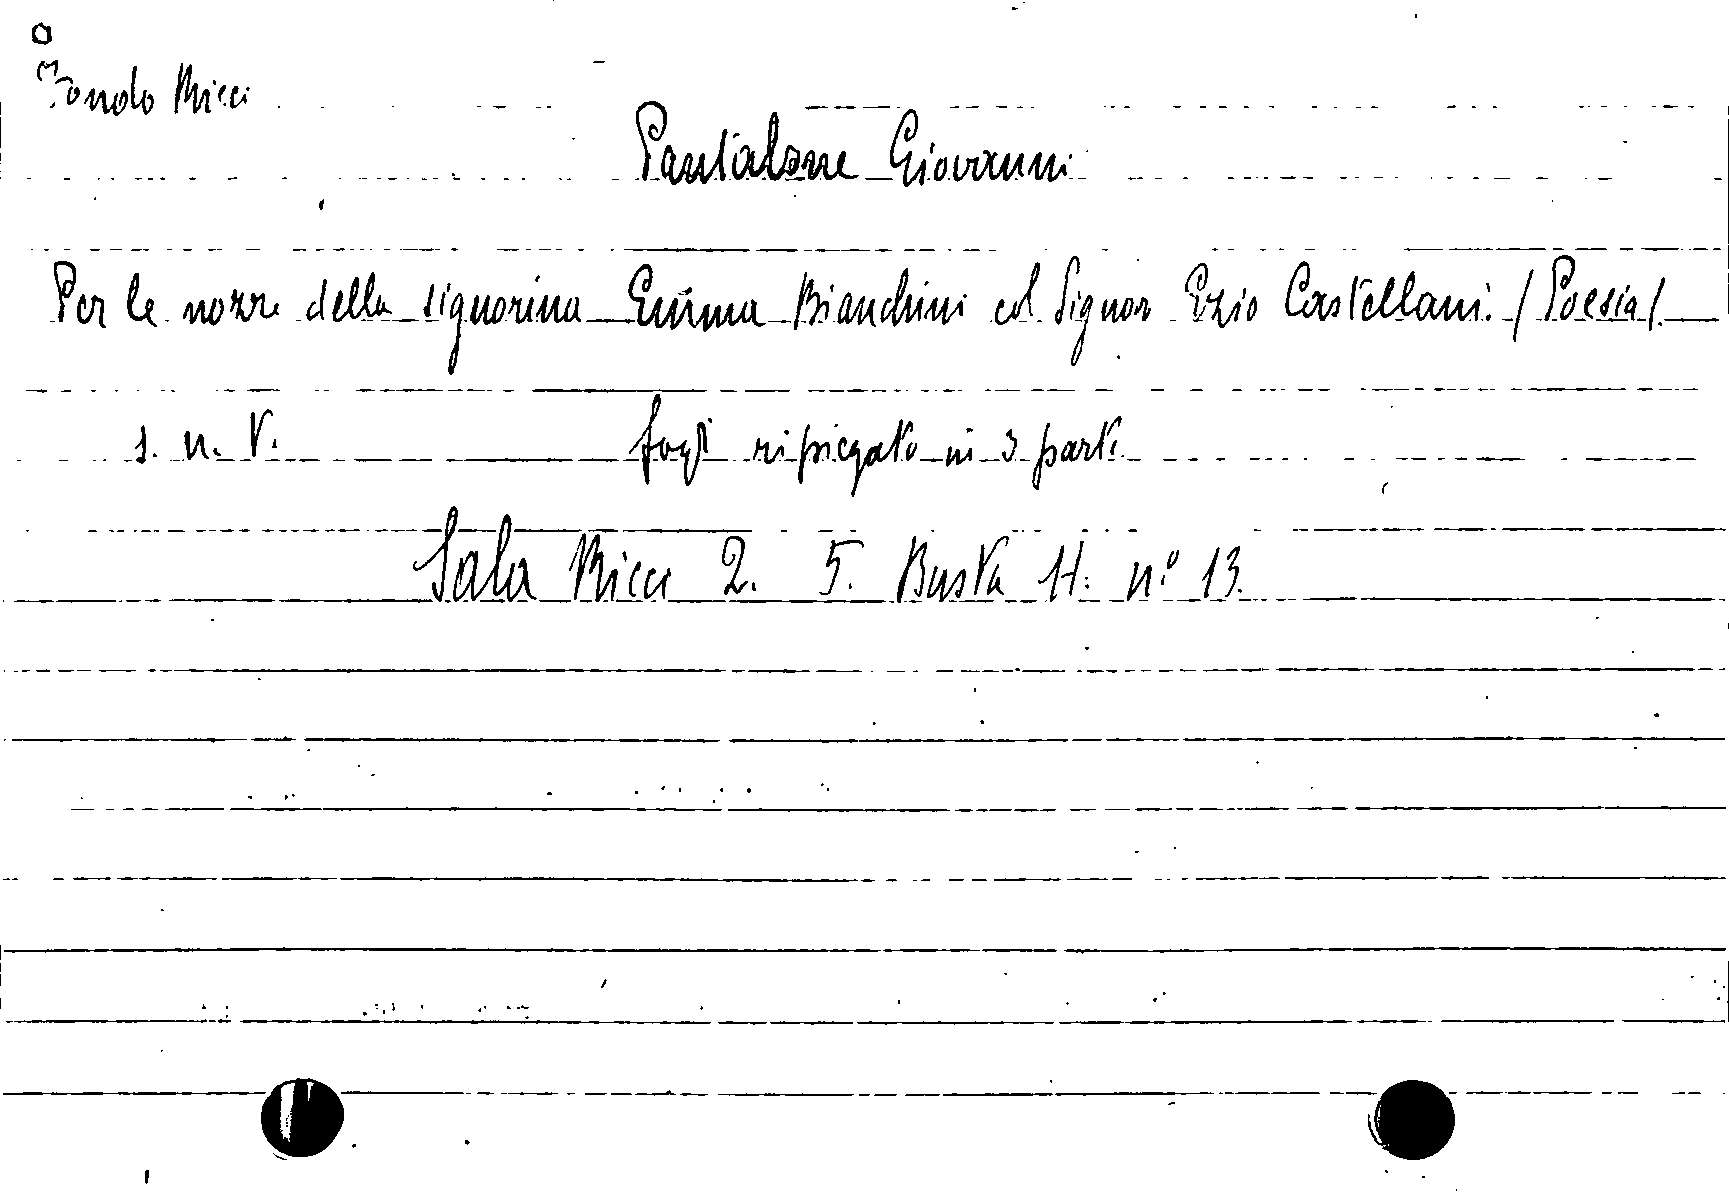 Fondo Ricci
Pantalone Giovanni
Per le nozze della signorina Emma Bianchini col Signor Ezio Castellani. (Poesia).
s. n. t. fogl ripiegato in 3 parti
Sala Ricci 2. 5. Busta 11. n.º 13.